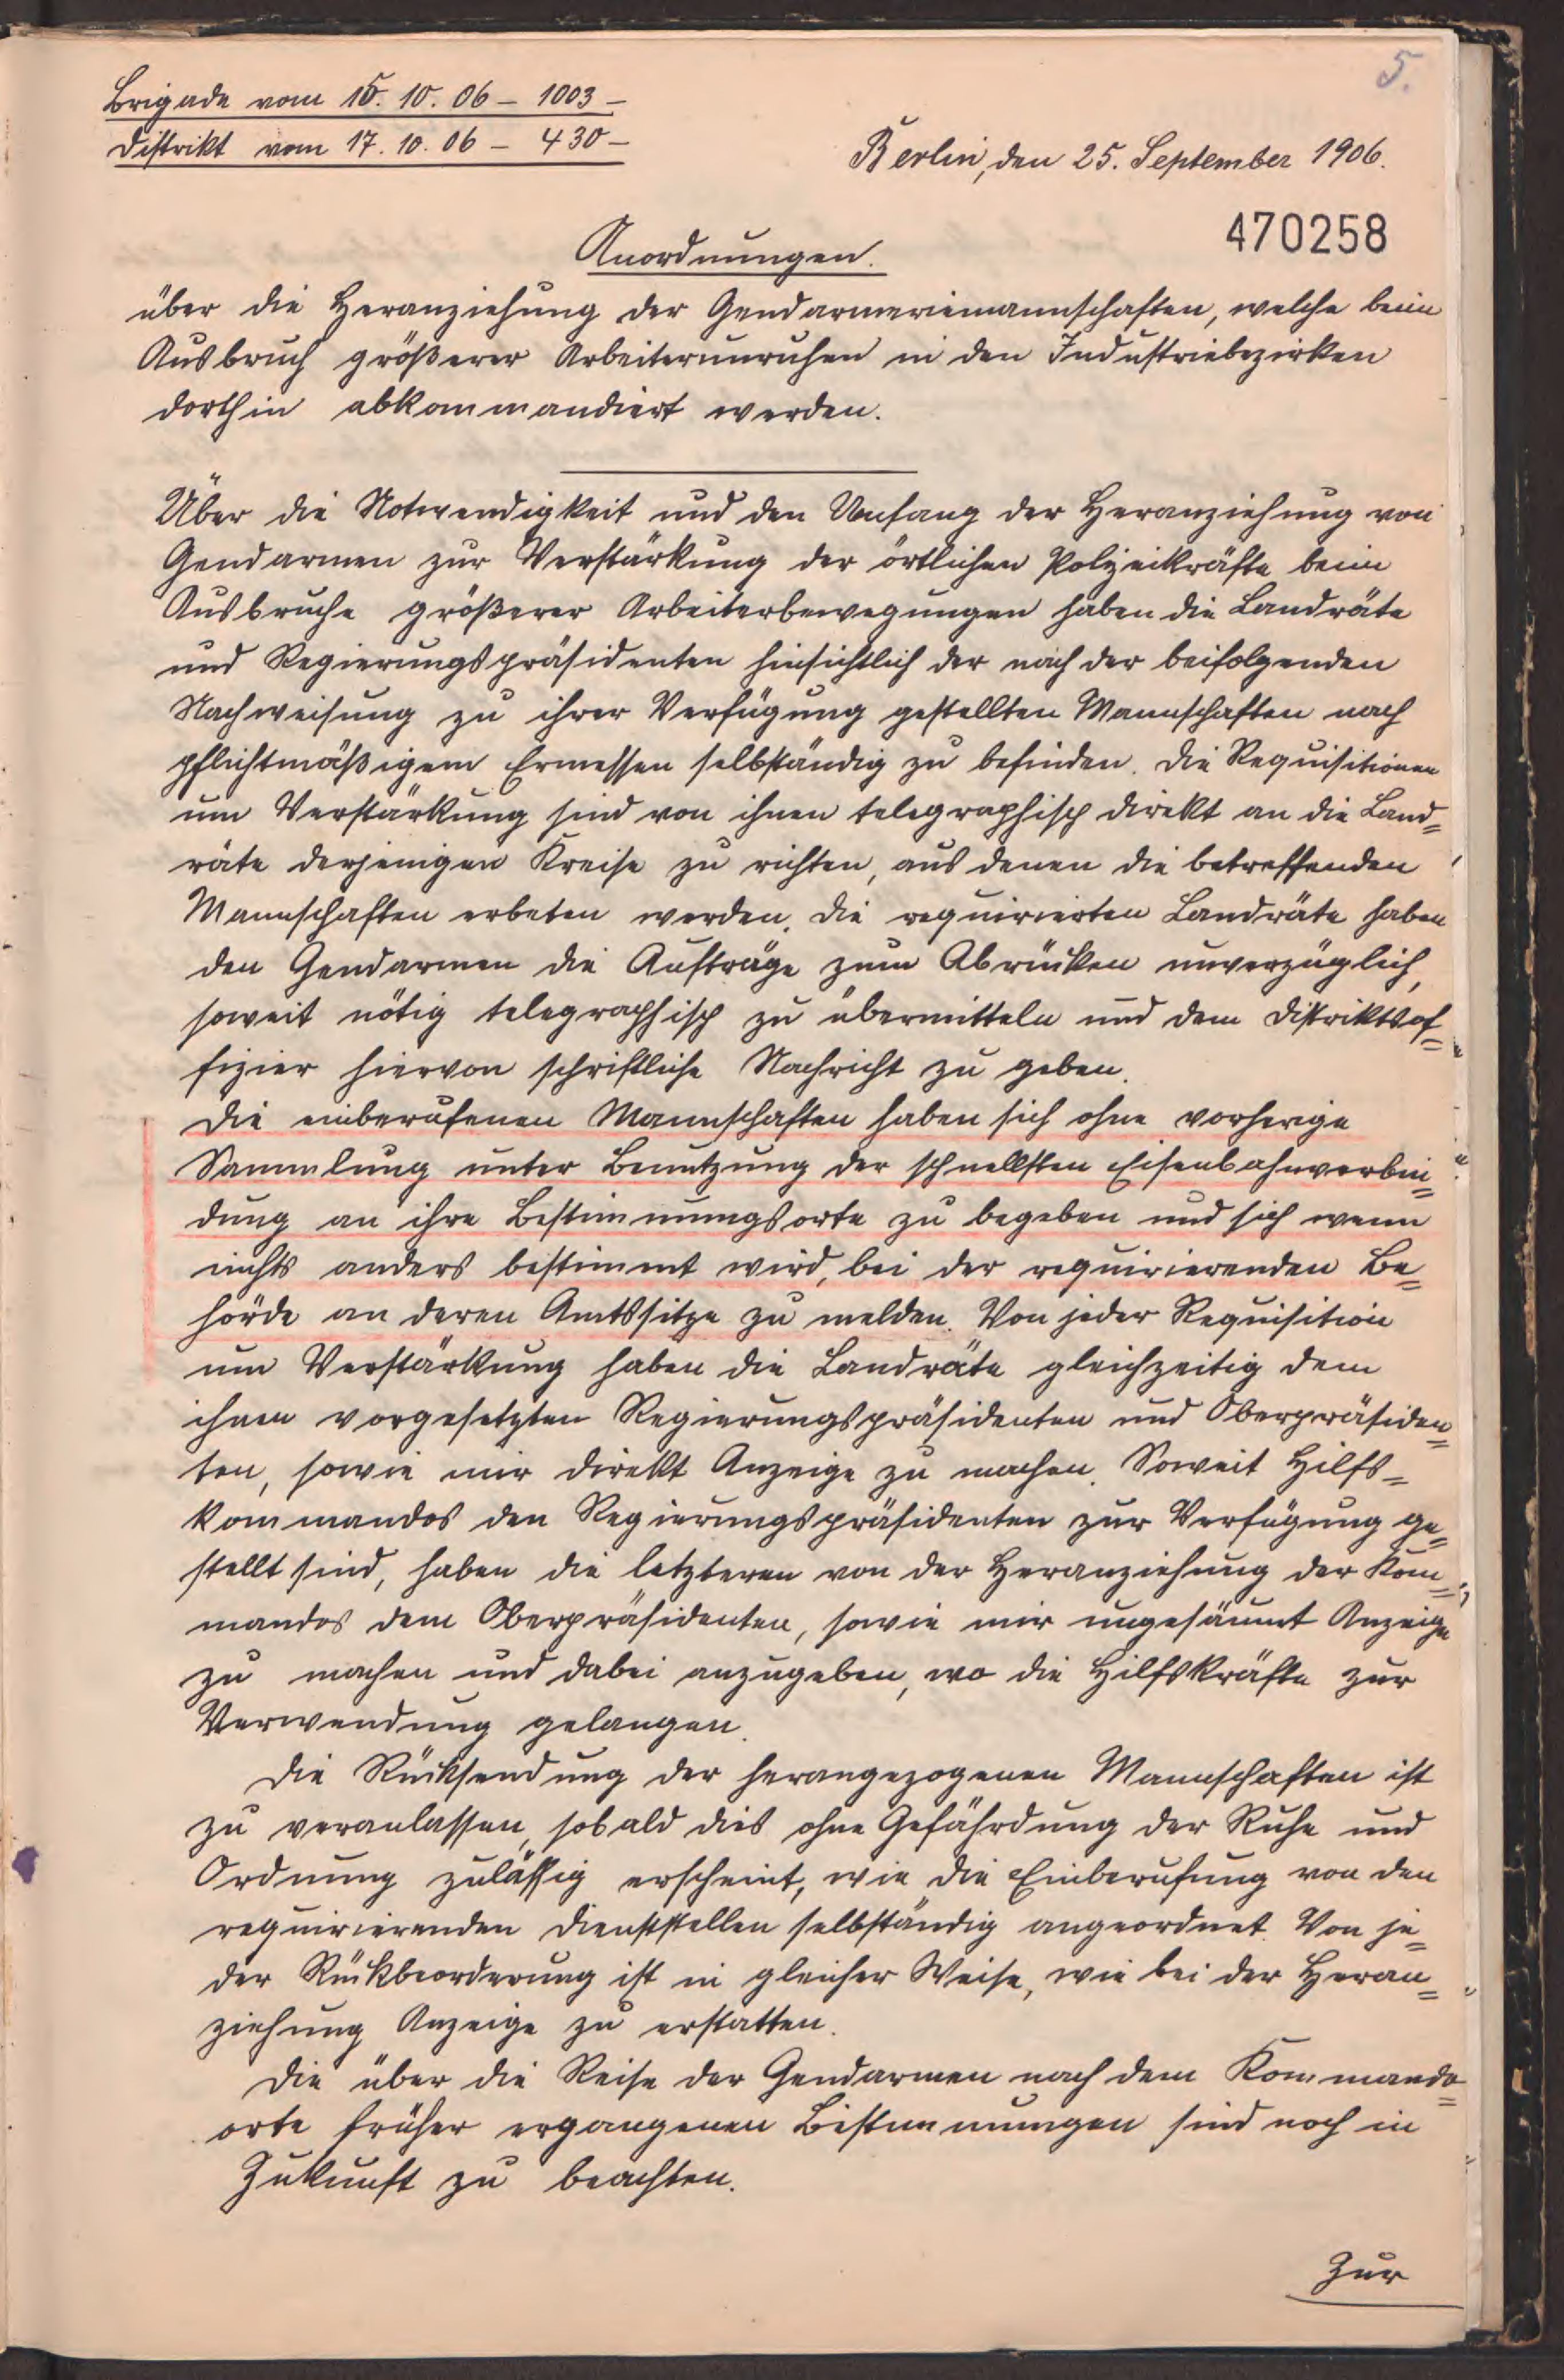 5.
Brigade vom 15. 10. 06 – 1003 –
Distrikt vom 17. 10. 06 – 430 –
Berlin, den 25. September 1906.
470258
Anordnungen.
über die Heranziehung der Gendarmeriemannschaften, welche beim
Ausbruch größerer Arbeiterunruhen in den Industriebezirken
dorthin abkommandiert werden.
Über die Notwendigkeit und den Umfang der Heranziehung von
Gendarmen zur Verstärkung der örtlichen Polizeikräfte beim
Ausbruche größerer Arbeiterbewegungen haben die Landräte
und Regierungspräsidenten hinsichtlich der nach der beifolgenden
Nachweisung zu ihrer Verfügung gestellten Mannschaften nach
pflichtmäßigem Ermessen selbständig zu befinden. Die Requisitionen
um Verstärkung sind von ihnen telegraphisch direkt an die Land=
räte derjenigen Kreise zu richten, aus denen die betreffenden
Mannschaften erbeten werden. Die requirierten Landräte haben
den Gendarmen die Aufträge zum Abrücken unverzüglich,
soweit nötig telegraphisch zu übermitteln und dem Distriktsof=
fizier hiervon schriftliche Nachricht zu geben.
Die einberufenen Mannschaften haben sich ohne vorherige
Sammlung unter Benutzung der schnellsten Eisenbahnverbin=
dung an ihre Bestimmungsorte zu begeben und sich wenn
nichts anders bestimmt wird, bei der requirierenden Be=
hörde an deren Amtssitze zu melden. Von jeder Requisition
um Verstärkung haben die Landräte gleichzeitig dem
ihnen vorgesetzten Regierungspräsidenten und Oberpräsiden=
ten, sowie mir direkt Anzeige zu machen. Soweit Hilfs=
kommandos den Regierungspräsidenten zur Verfügung ge=
stellt sind, haben die letzteren von der Heranziehung der Kom=
mandos dem Oberpräsidenten, sowie mir ungesäumt Anzeige
zu machen und dabei anzugeben, wo die Hilfskräfte zur
Verwendung gelangen.
Die Rücksendung der herangezogenen Mannschaften ist
zu veranlassen, sobald dies ohne Gefährdung der Ruhe und
Ordnung zulässig erscheint, wie die Einberufung von den
requirierenden Dienststellen selbständig angeordnet. Von je=
der Rückbeorderung ist in gleicher Weise, wie bei der Heran=
ziehung Anzeige zu erstatten.
Die über die Reise der Gendarmen nach dem Kommando=
orte früher ergangenen Bestimmungen sind noch in
Zukunft zu beachten.
Zur